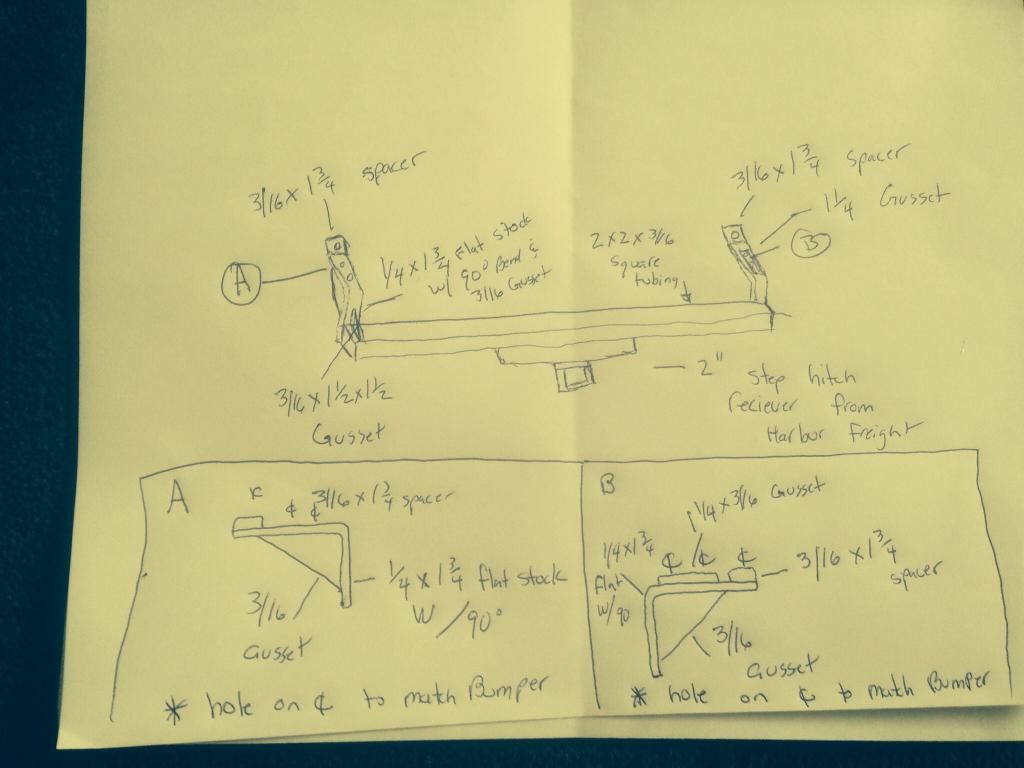 3/16 x 1 3/4 spacer
A
1/4 x 1 3/4 Flat stock
w/ 90° Bend &
3/16 Gusset
3/16 x 1 1/2 x 1 1/2
Gusset
2 x 2 x 3/16
square
tubing
3/16 x 1 3/4 spacer
1 1/4 Gusset
B
2" Step hitch
reciever from
Harbor Freight
A
℄ ℄ 3/16 x 1 3/4 spacer
1/4 x 1 3/4 flat stock
W/90°
3/16
Gusset
* hole on ℄ to match Bumper
B
1/4 x 3/16 Gusset
1/4 x 1 3/4
flat
W/90
℄ ℄ ℄
3/16 x 1 3/4
spacer
3/16
Gusset
* hole on ℄ to match Bumper